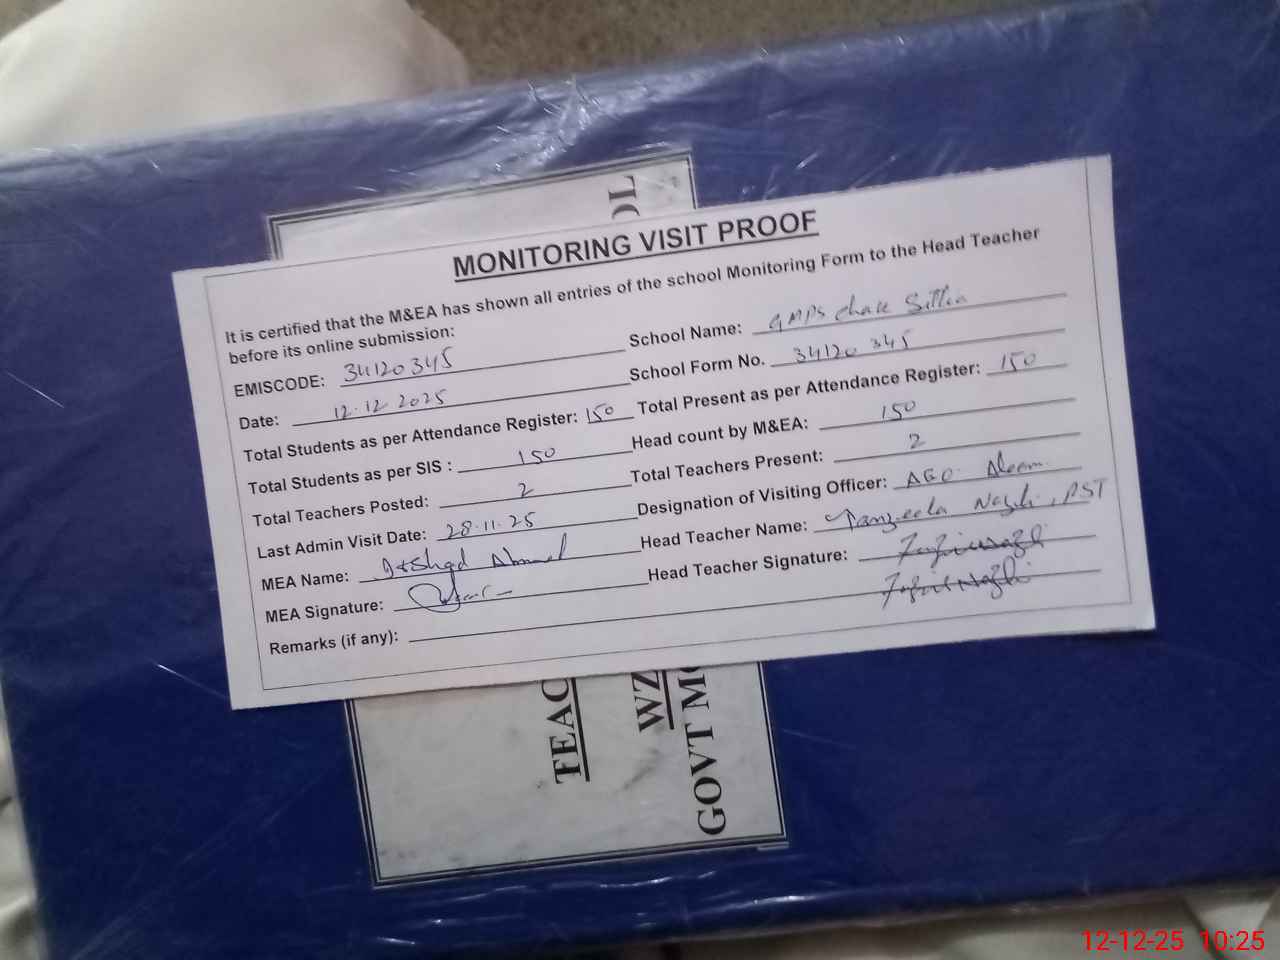 OL
MONITORING VISIT PROOF
It is certified that the M&EA has shown all entries of the school Monitoring Form to the Head Teacher
before its online submission:
School Name: GMPS Chak
EMISCODE: 34120345
School Form No. 34120 345
Date: 12.12 2025
Total Students as per Attendance Register: 150
Total Present as per Attendance Register: 150
Total Students as per SIS : 150
Head count by M&EA: 150
Total Teachers Posted: 2
Total Teachers Present: 2
Last Admin Visit Date: 28.11.25
Designation of Visiting Officer: AEO
MEA Name: Ahmed
Head Teacher Name: Tanzeela Nazli, PST
MEA Signature:
Head Teacher Signature:
Remarks (if any):
TEAC
WZ
GOVT MO
12-12-25 10:25